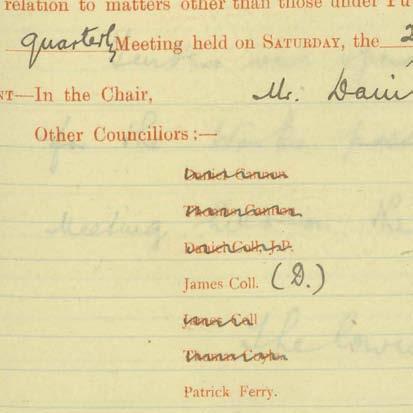 relation to matters other than those under
quarterly Meeting held on SATURDAY, the
NT—In the Chair, Mr.
Other Councillors:—
Daniel Gannon
Thomas Gannon.
Daniel Coll, J.P.
James Coll. (D.)
James Coll
Thomas Coyle.
Patrick Ferry.